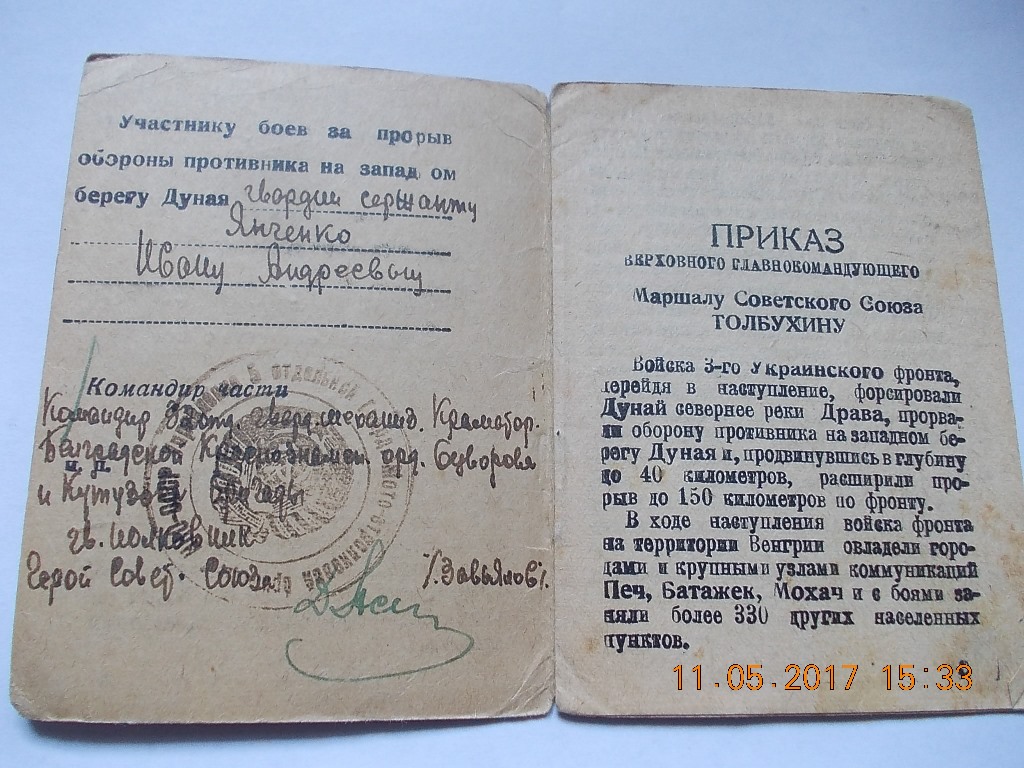 Участнику боев за прорыв
обороны противника на запад ом
берегу Дуная гвардии сержанту
Янченко
Ивану Андреевичу
Командир части
Командир 5 отд. гвард. механиз. Краматор.
Белградской Краснознамен. орд. Суворова
и Кутузова бригады
гв. полковник
Герой Совет. Союза /Завьялов/.
ПРИКАЗ
ВЕРХОВНОГО ГЛАВНОКОМАНДУЮЩЕГО
Маршалу Советского Союза
ТОЛБУХИНУ
Войска 3-го Украинского фронта,
перейдя в наступление, форсировали
Дунай севернее реки Драва, прорва-
ли оборону противника на западном бе-
регу Дуная и, продвинувшись в глубину
до 40 километров, расширили про-
рыв до 150 километров по фронту.
В ходе наступления войска фронта
на территории Венгрии овладели горо-
дами и крупными узлами коммуникаций
Печ, Батажек, Мохач и с боями за-
няли более 330 других населенных
пунктов.
11.05.2017 15:33